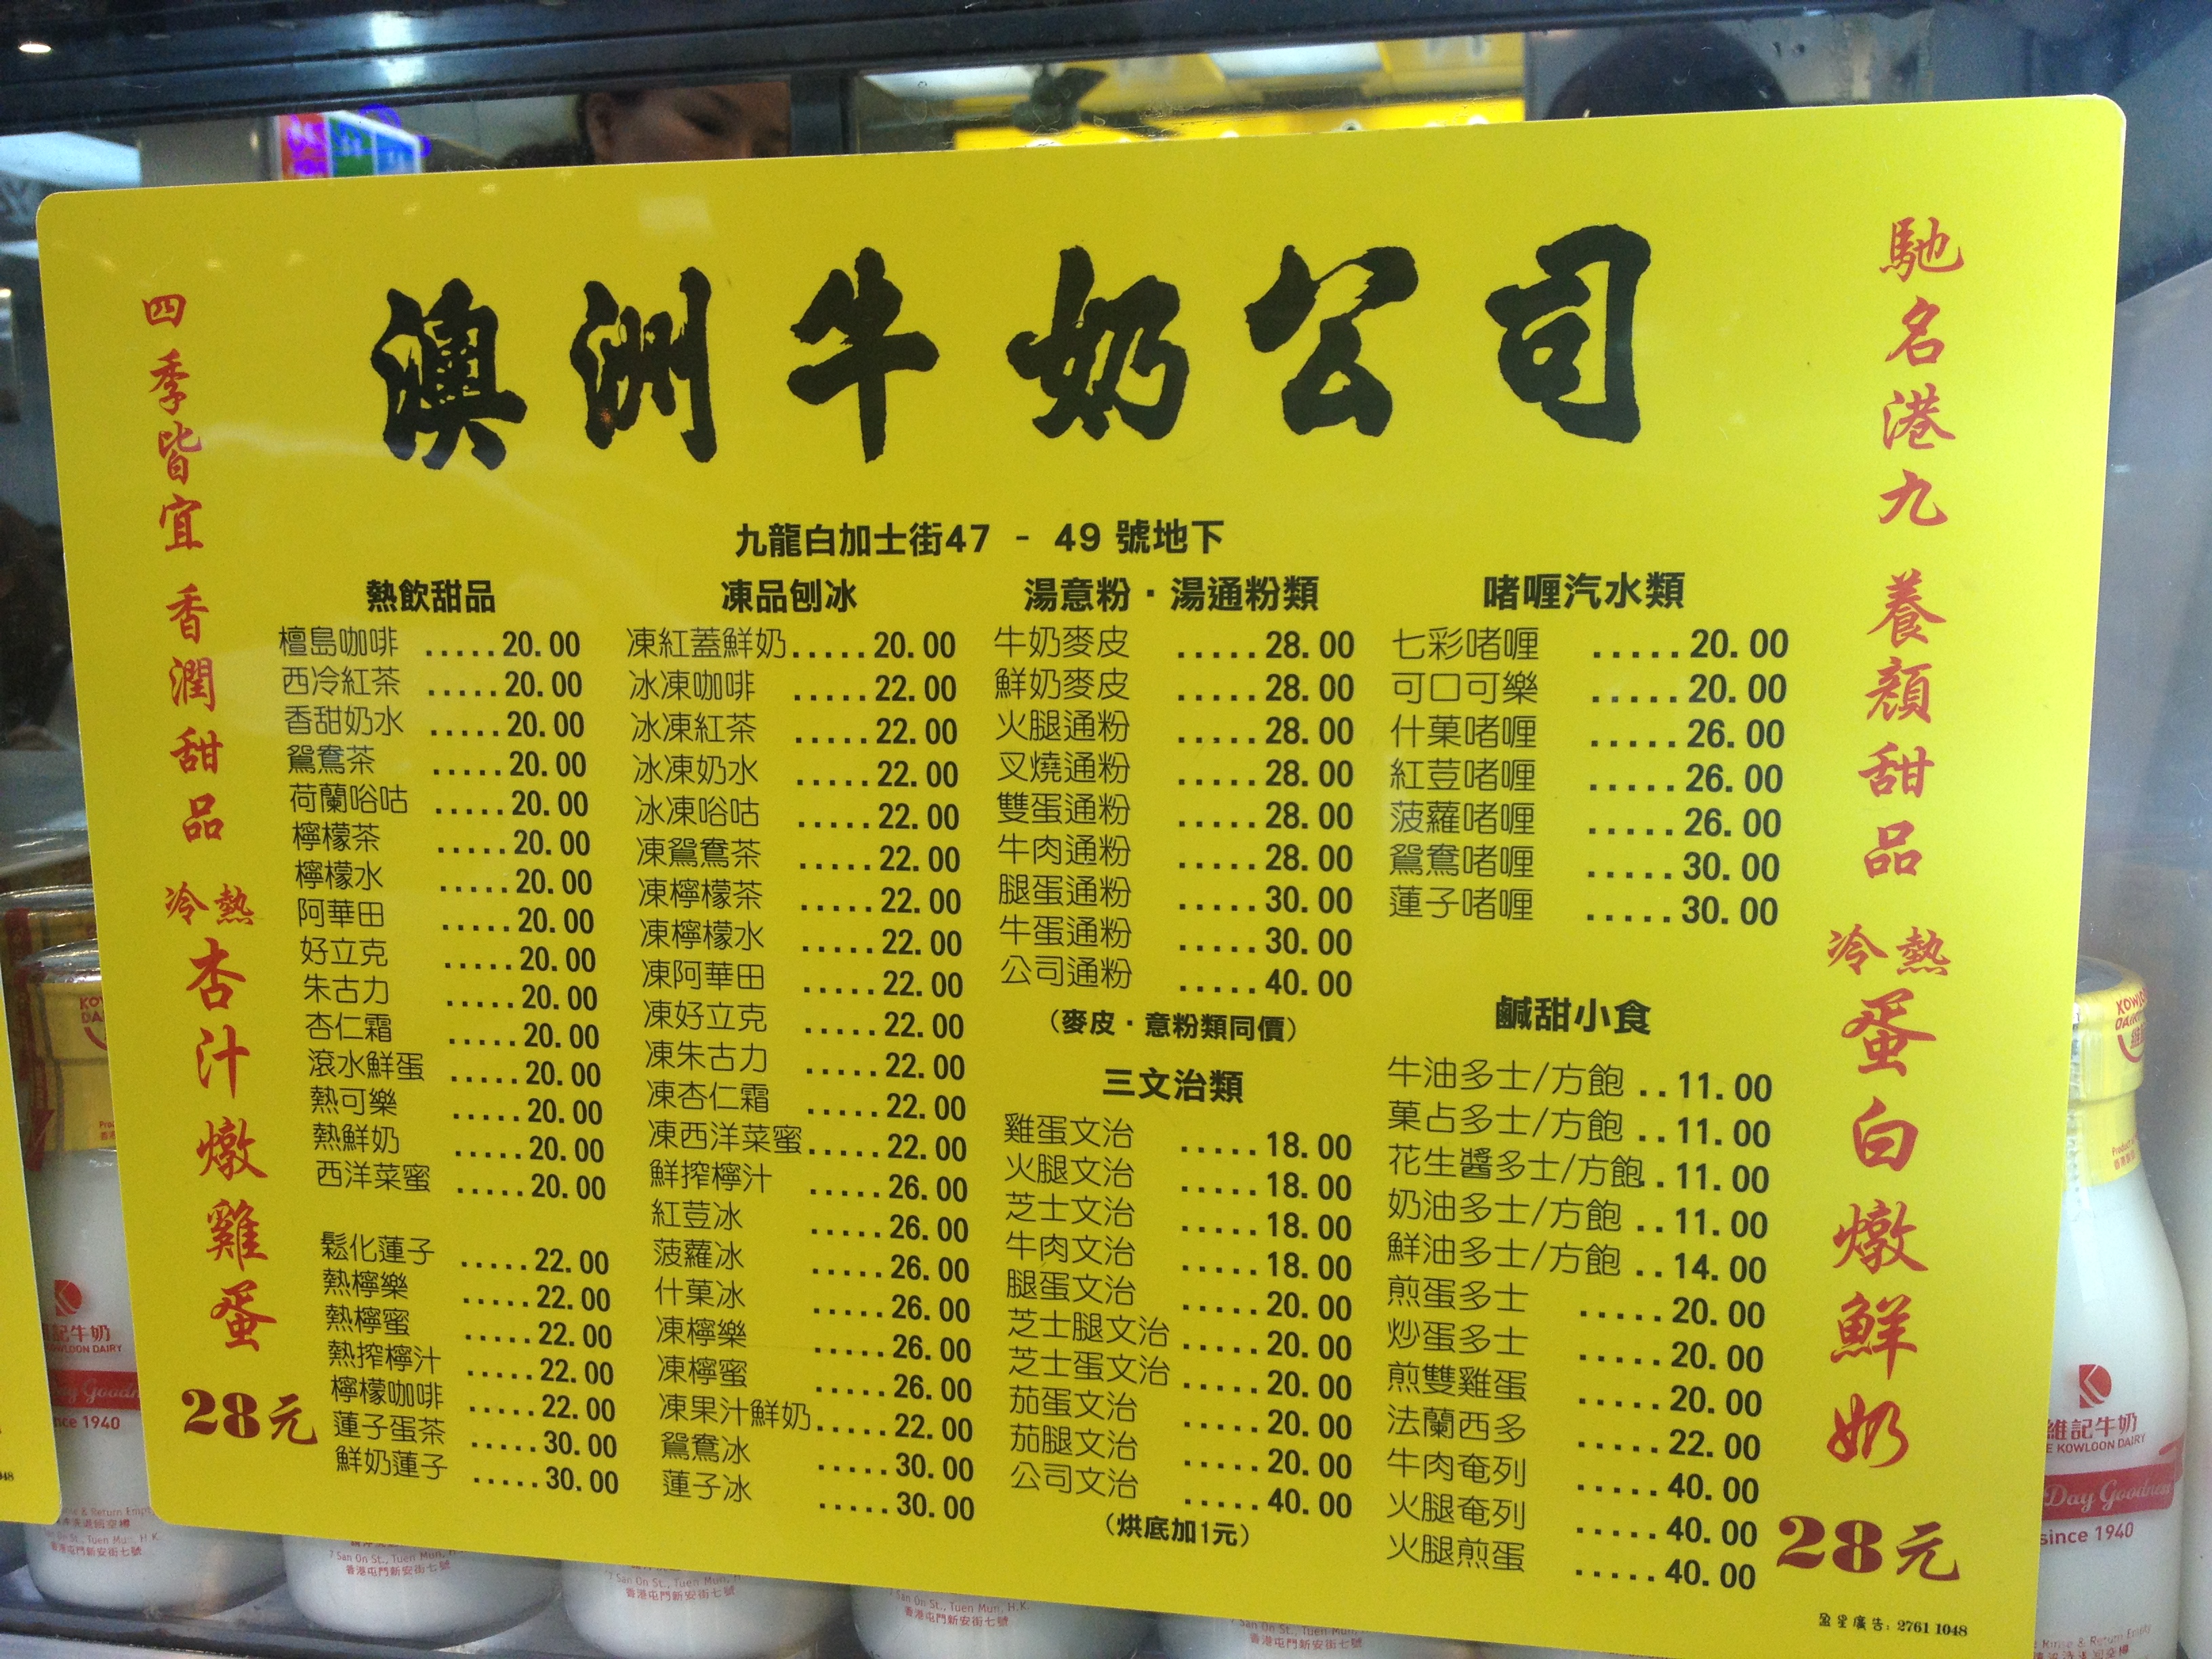 澳洲牛奶公司
九龍白加士街47 - 49 號地下
馳名港九 養顏甜品
冷熱
蛋白燉鮮奶
28元
四季皆宜 香潤甜品
冷熱
杏汁燉雞蛋
28元
熱飲甜品
檀島咖啡 .....20.00
西冷紅茶 .....20.00
香甜奶水 .....20.00
鴛鴦茶 .....20.00
荷蘭唂咕 .....20.00
檸檬茶 .....20.00
檸檬水 .....20.00
阿華田 .....20.00
好立克 .....20.00
朱古力 .....20.00
杏仁霜 .....20.00
滾水鮮蛋 .....20.00
熱可樂 .....20.00
熱鮮奶 .....20.00
西洋菜蜜 .....20.00
鬆化蓮子 .....22.00
熱檸樂 .....22.00
熱檸蜜 .....22.00
熱搾檸汁 .....22.00
檸檬咖啡 .....22.00
蓮子蛋茶 .....30.00
鮮奶蓮子 .....30.00
凍品刨冰
凍紅蓋鮮奶.....20.00
冰凍咖啡 .....22.00
冰凍紅茶 .....22.00
冰凍奶水 .....22.00
冰凍唂咕 .....22.00
凍鴛鴦茶 .....22.00
凍檸檬茶 .....22.00
凍檸檬水 .....22.00
凍阿華田 .....22.00
凍好立克 .....22.00
凍朱古力 .....22.00
凍杏仁霜 .....22.00
凍西洋菜蜜.....22.00
鮮搾檸汁 .....26.00
紅荳冰 .....26.00
菠蘿冰 .....26.00
什菓冰 .....26.00
凍檸樂 .....26.00
凍檸蜜 .....26.00
凍果汁鮮奶.....22.00
鴛鴦冰 .....30.00
蓮子冰 .....30.00
湯意粉·湯通粉類
牛奶麥皮 .....28.00
鮮奶麥皮 .....28.00
火腿通粉 .....28.00
叉燒通粉 .....28.00
雙蛋通粉 .....28.00
牛肉通粉 .....28.00
腿蛋通粉 .....30.00
牛蛋通粉 .....30.00
公司通粉 .....40.00
(麥皮·意粉類同價)
三文治類
雞蛋文治 .....18.00
火腿文治 .....18.00
芝士文治 .....18.00
牛肉文治 .....18.00
腿蛋文治 .....20.00
芝士腿文治 .....20.00
芝士蛋文治 .....20.00
茄蛋文治 .....20.00
茄腿文治 .....20.00
公司文治 .....40.00
(烘底加1元)
啫喱汽水類
七彩啫喱 .....20.00
可口可樂 .....20.00
什菓啫喱 .....26.00
紅荳啫喱 .....26.00
菠蘿啫喱 .....26.00
鴛鴦啫喱 .....30.00
蓮子啫喱 .....30.00
鹹甜小食
牛油多士/方飽 ..11.00
菓占多士/方飽 ..11.00
花生醬多士/方飽..11.00
奶油多士/方飽 ..11.00
鮮油多士/方飽 ..14.00
煎蛋多士 .....20.00
炒蛋多士 .....20.00
煎雙雞蛋 .....20.00
法蘭西多 .....22.00
牛肉奄列 .....40.00
火腿奄列 .....40.00
火腿煎蛋 .....40.00
盈星廣告：2761 1048
維記牛奶
KOWLOON DAIRY
Day Goodness
since 1940
7 San On St., Tuen Mun, H.K.
香港屯門新安街七號